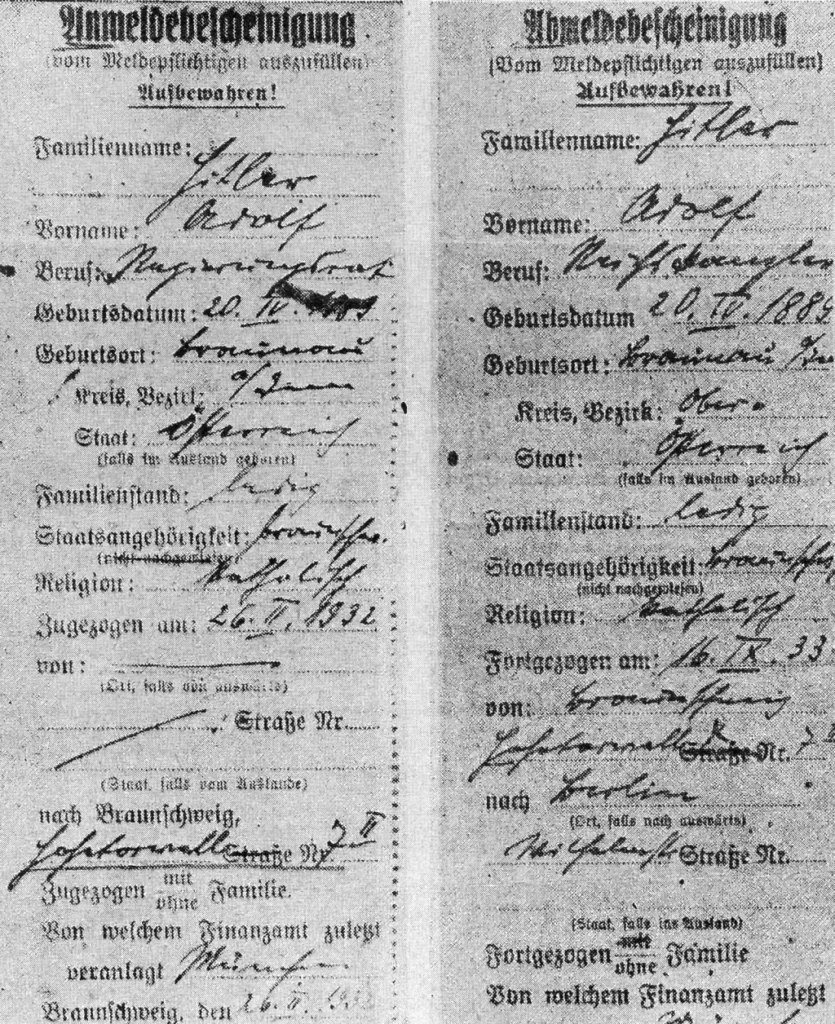 Anmeldebescheinigung
(vom Meldepflichtigen auszufüllen)
Aufbewahren!
Familienname:
Hitler
Vorname: Adolf
Beruf: Regierungsrat
Geburtsdatum: 20. IV. 1889
Geburtsort: Braunau
Kreis, Bezirk: a/Inn
Staat: Österreich
(falls im Ausland geboren)
Familienstand: ledig
Staatsangehörigkeit: braunschw.
(nicht nachgewiesen)
Religion: katholisch
Zugezogen am: 26. II. 1932
von:
(Ort, falls von auswärts)
Straße Nr.
(Staat, falls vom Auslande)
nach Braunschweig,
Hohetorwall Straße Nr. 7 II
Zugezogen mit
ohne Familie.
Von welchem Finanzamt zuletzt
veranlagt München
Braunschweig, den 26. II. 193
Abmeldebescheinigung
(Vom Meldepflichtigen auszufüllen)
Aufbewahren!
Familienname: Hitler
Vorname: Adolf
Beruf: Reichskanzler
Geburtsdatum 20. IV. 1889
Geburtsort: Braunau a/Inn
Kreis, Bezirk: Ober
Staat: Österreich
(falls im Ausland geboren)
Familienstand: ledig
Staatsangehörigkeit: braunschw
(nicht nachgewiesen)
Religion: katholisch
Fortgezogen am: 16. IX. 33
von: Braunschweig
Hohetorwall Straße Nr. 7 II
nach Berlin
(Ort, falls nach auswärts)
Wilhelmstr Straße Nr.
(Staat, falls ins Ausland)
Fortgezogen mit
ohne Familie
Von welchem Finanzamt zuletzt